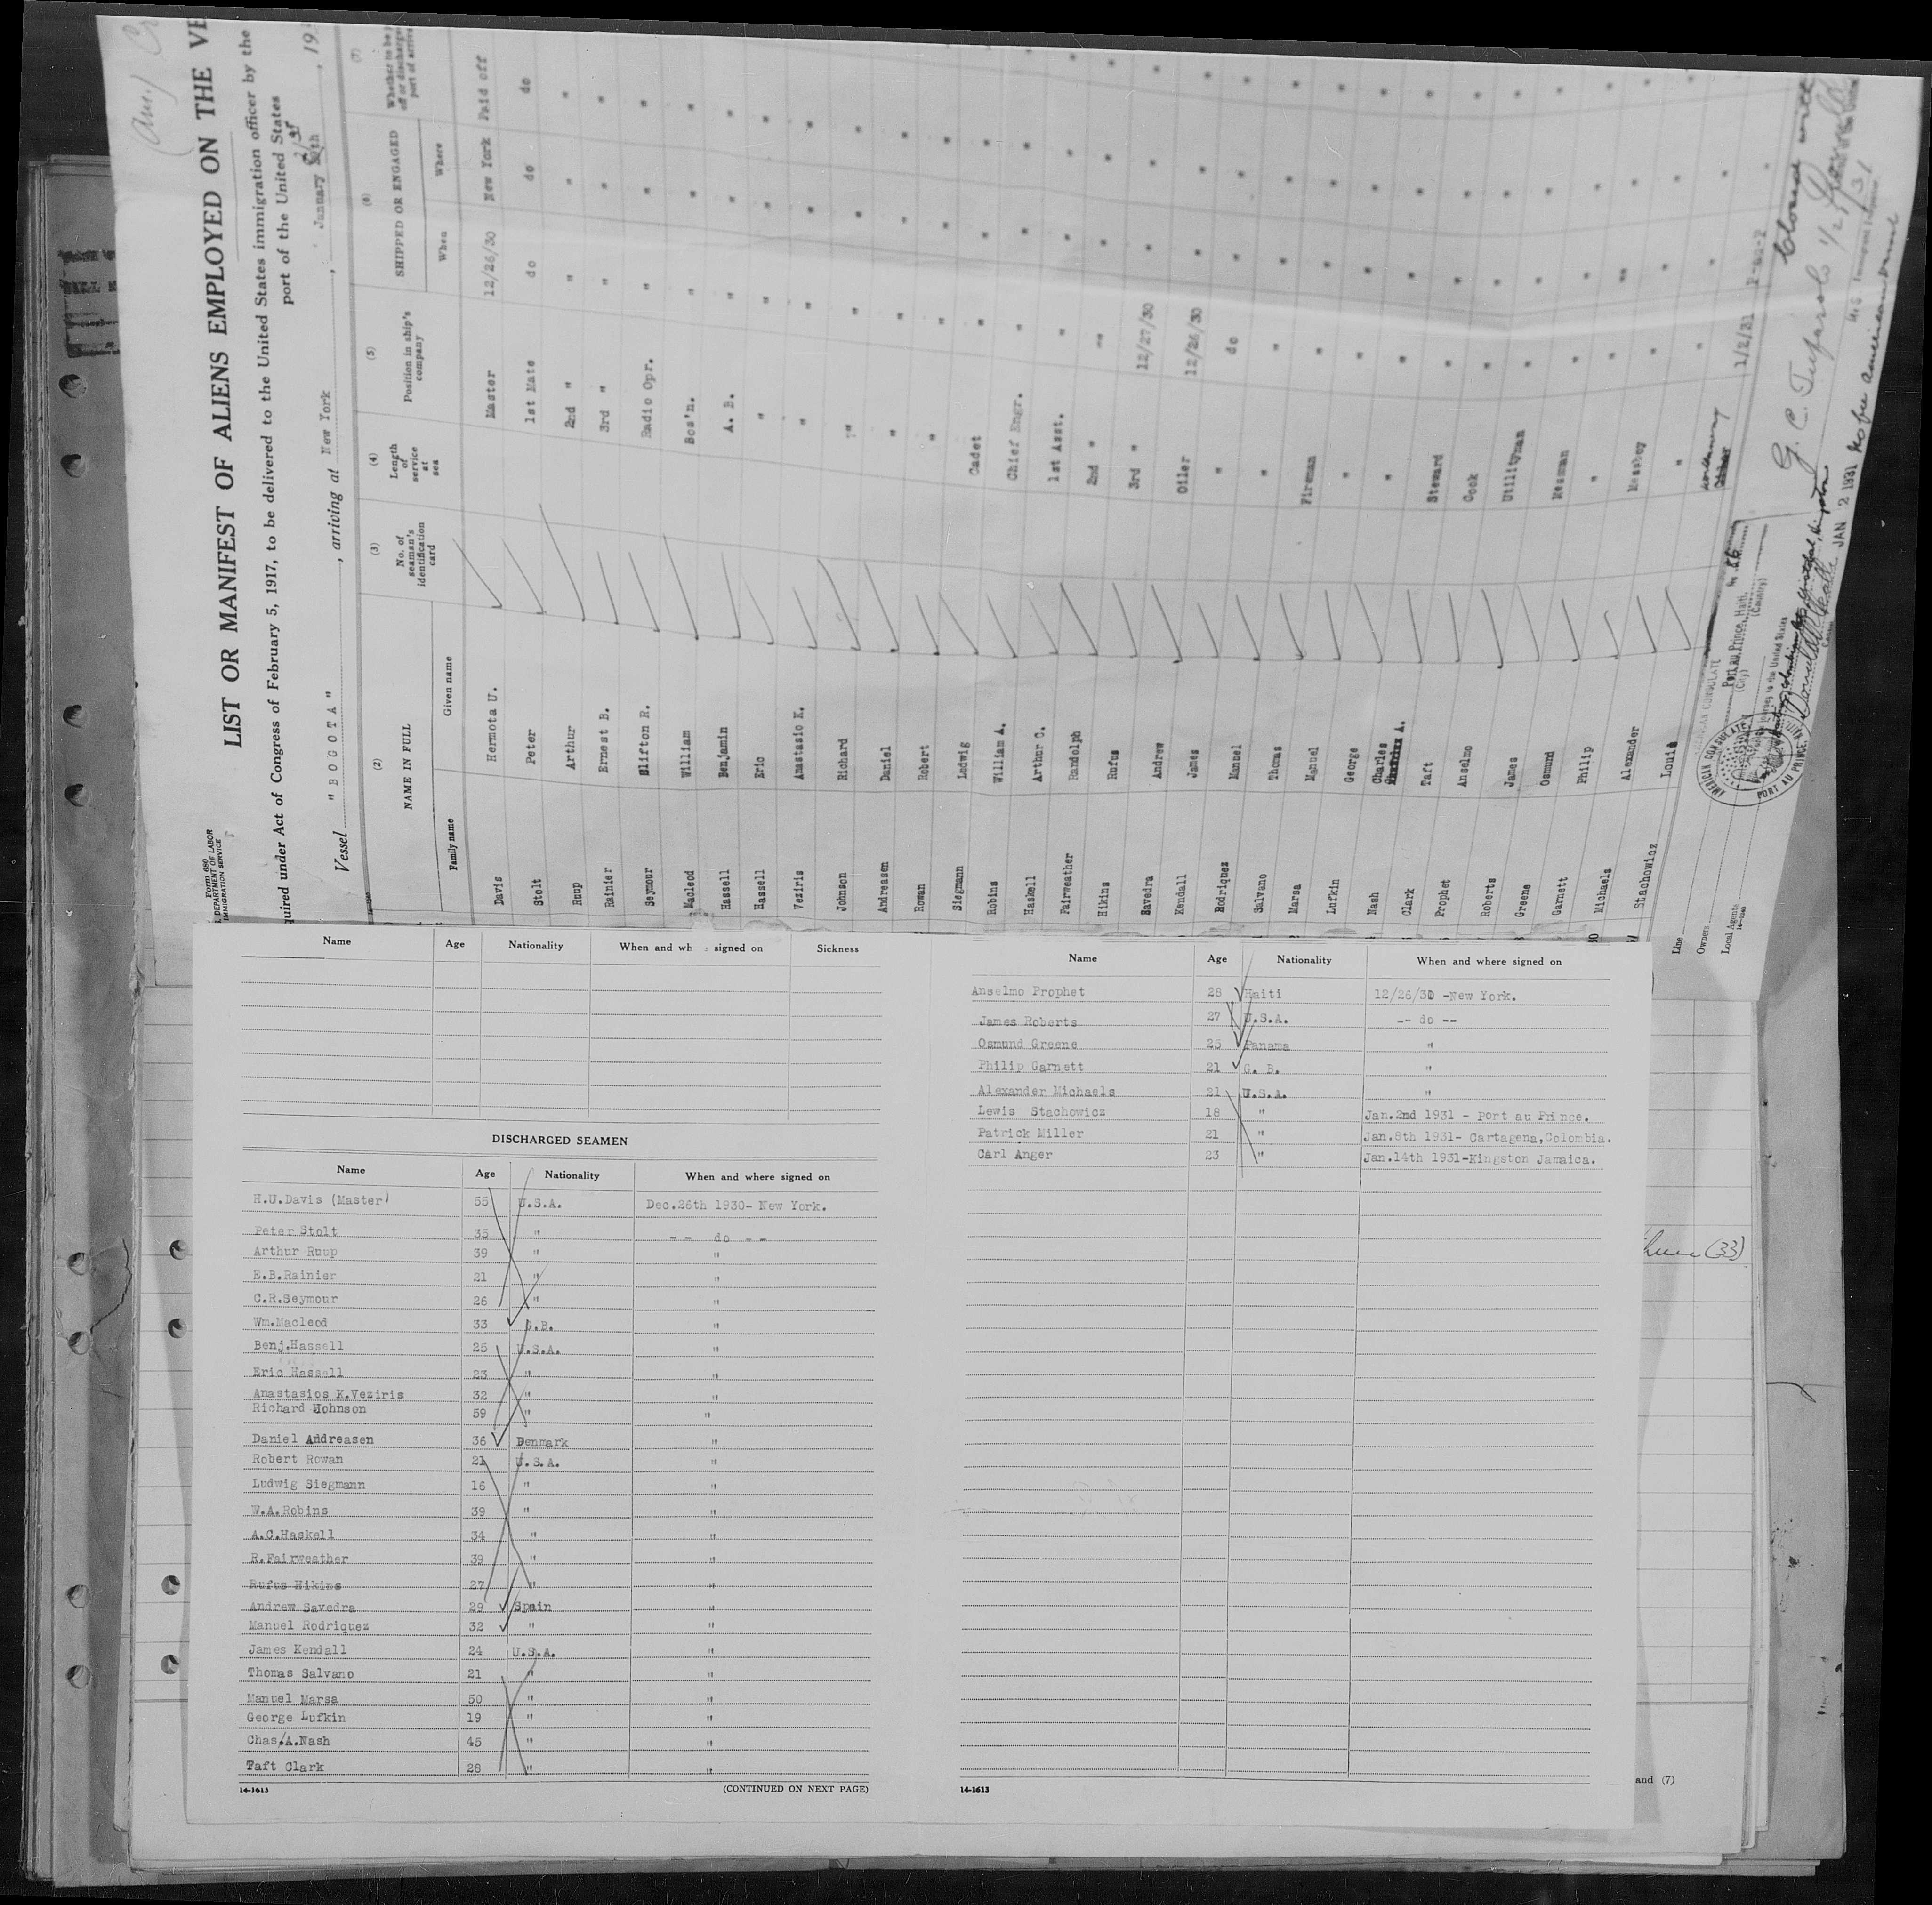 Form 680
DEPARTMENT OF LABOR
IMMIGRATION SERVICE
LIST OR MANIFEST OF ALIENS EMPLOYED ON THE
quired under Act of Congress of February 5, 1917, to be delivered to the United States immigration officer by the
port of the United States
Vessel "BOGOTA", arriving at New York, January
(2) (3) (4) (5) (6) (7)
NAME IN FULL
Family name Given name
No. of seaman's identification card
Length of service at sea
Position in ship's company
SHIPPED OR ENGAGED
When Where
Davis Hermota U. Master 12/26/30 New York Paid off
Stolt Peter 1st Mate do do do
Ruup Arthur 2nd " " " "
Rainier Ernest B. 3rd " " " "
Seymour Clifton R. Radio Opr. " " "
Macleod William Bos'n. " " "
Hassell Benjamin A. B. " " "
Hassell Eric " " " "
Veziris Anastasio K. " " " "
Johnson Richard " " " "
Andreasen Daniel " " " "
Rowan Robert " " " "
Siegmann Ledwig Cadet " " "
Robins William A. Chief Engr. " " "
Haskell Arthur C. 1st Asst. " " "
Fairweather Randolph 2nd " " " "
Hikins Rufus 3rd " 12/27/30 " "
Savedra Andrew Oiler 12/26/30 " "
Kendall James " do " "
Rodriquez Manuel " " " "
Salvano Thomas Fireman " " "
Marsa Manuel " " " "
Lufkin George " " " "
Nash Charles A. Steward " " "
Clark Taft Cook " " "
Prophet Anselmo Utilityman " " "
Roberts James Mesman " " "
Greene Osmund " " " "
Garnett Philip Messboy " " "
Michaels Alexander " " " "
Stachowicz Louis 1/2/31
Line
Owners
Local Agents
AMERICAN CONSULATE
Port au Prince, Haiti.
(City) (Country)
AMERICAN CONSULATE
PORT AU PRINCE, HAITI
JAN 2 1931 No fee american vessel
Name Age Nationality When and wh signed on Sickness
DISCHARGED SEAMEN
Name Age Nationality When and where signed on
H.U.Davis (Master) 55 U.S.A. Dec.26th 1930- New York.
Peter Stolt 35 " -- do --
Arthur Ruup 39 " "
E.B.Rainier 21 " "
C.R.Seymour 26 " "
Wm.Macleod 33 G.B. "
Benj.Hassell 25 U.S.A. "
Eric Hassell 23 " "
Anastasios K.Veziris 32 " "
Richard Johnson 59 " "
Daniel Andreasen 36 Denmark "
Robert Rowan 21 U.S.A. "
Ludwig Siegmann 16 " "
W.A.Robins 39 " "
A.C.Haskell 34 " "
R.Fairweather 39 " "
Rufus Hikins 27 " "
Andrew Savedra 29 Spain "
Manuel Rodriquez 32 " "
James Kendall 24 U.S.A. "
Thomas Salvano 21 " "
Manuel Marsa 50 " "
George Lufkin 19 " "
Chas.A.Nash 45 " "
Taft Clark 28 " "
14-1613 (CONTINUED ON NEXT PAGE)
Name Age Nationality When and where signed on
Anselmo Prophet 28 Haiti 12/26/30 -New York.
James Roberts 27 U.S.A. -- do --
Osmund Greene 25 Panama "
Philip Garnett 21 G. B. "
Alexander Michaels 21 U.S.A. "
Lewis Stachowicz 18 " Jan.2nd 1931 - Port au Prince.
Patrick Miller 21 " Jan.8th 1931- Cartagena,Colombia.
Carl Anger 23 " Jan.14th 1931-Kingston Jamaica.
14-1613
(33)
and (7)